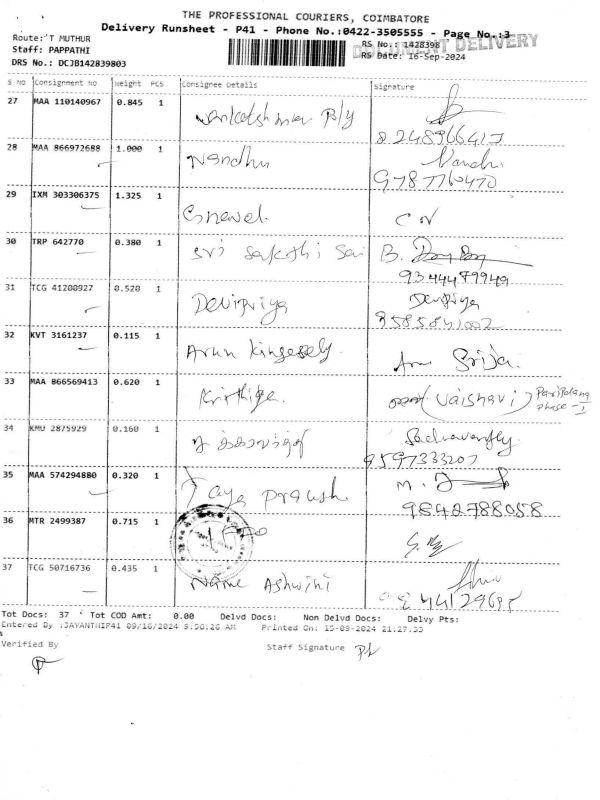 THE PROFESSIONAL COURIERS, COIMBATORE
Delivery Runsheet - P41 - Phone No.:0422-3505555 - Page No.:3
DOCUMENT DELIVERY
Route: T MUTHUR
RS No.: 1428398
Staff: PAPPATHI
RS Date: 16-Sep-2024
DRS No.: DCJB142839803
S NO Consignment NO Weight PCS Consignee Details Signature
27 MAA 110140967 0.845 1
8248966417
28 MAA 866972688 1.000 1 Nandhu Nandhu
9787760470
29 IXM 303306375 1.325 1 C N
30 TRP 642770 0.380 1 Sri Sakthi Sai B.
9344479949
31 TCG 41200927 0.520 1 Devipriya Devipriya
9585841002
32 KVT 3161237 0.115 1 Arun Kingesely Srija
33 MAA 866569413 0.620 1 Krithiga (Vaishavi) phase - I
34 KMU 2875929 0.160 1
9597333207
35 MAA 574294880 0.320 1 Jaya Prakash M.
9842788058
36 MTR 2499387 0.715 1
37 TCG 50716736 0.435 1 Name Ashwini
Tot Docs: 37 Tot COD Amt: 0.00 Delvd Docs: Non Delvd Docs: Delvy Pts:
Entered By :JAYANTHIP41 09/16/2024 9:56:26 AM Printed On: 15-09-2024 21:27:33
Verified By Staff Signature